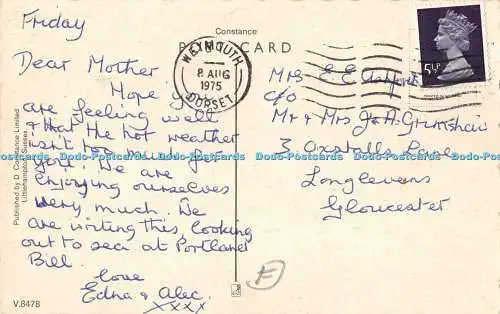 Friday
Dear Mother
Hope you
are feeling well
& that the hot weather
isn't too much for
you. We are
enjoying ourselves
very much. We
are writing this looking
out to sea at Portland
Bill.
love
Edna & Alec.
xxxx
Constance
POSTCARD
WEYMOUTH
8 AUG
1975
DORSET
5½P
Mrs E E
C/O
Mr & Mrs J A Grimshaw
3, Oxstalls Lane
Longlevens
Gloucester
Published by D. Constance Limited
Littlehampton, Sussex.
V.8478
E
Postcards-Online